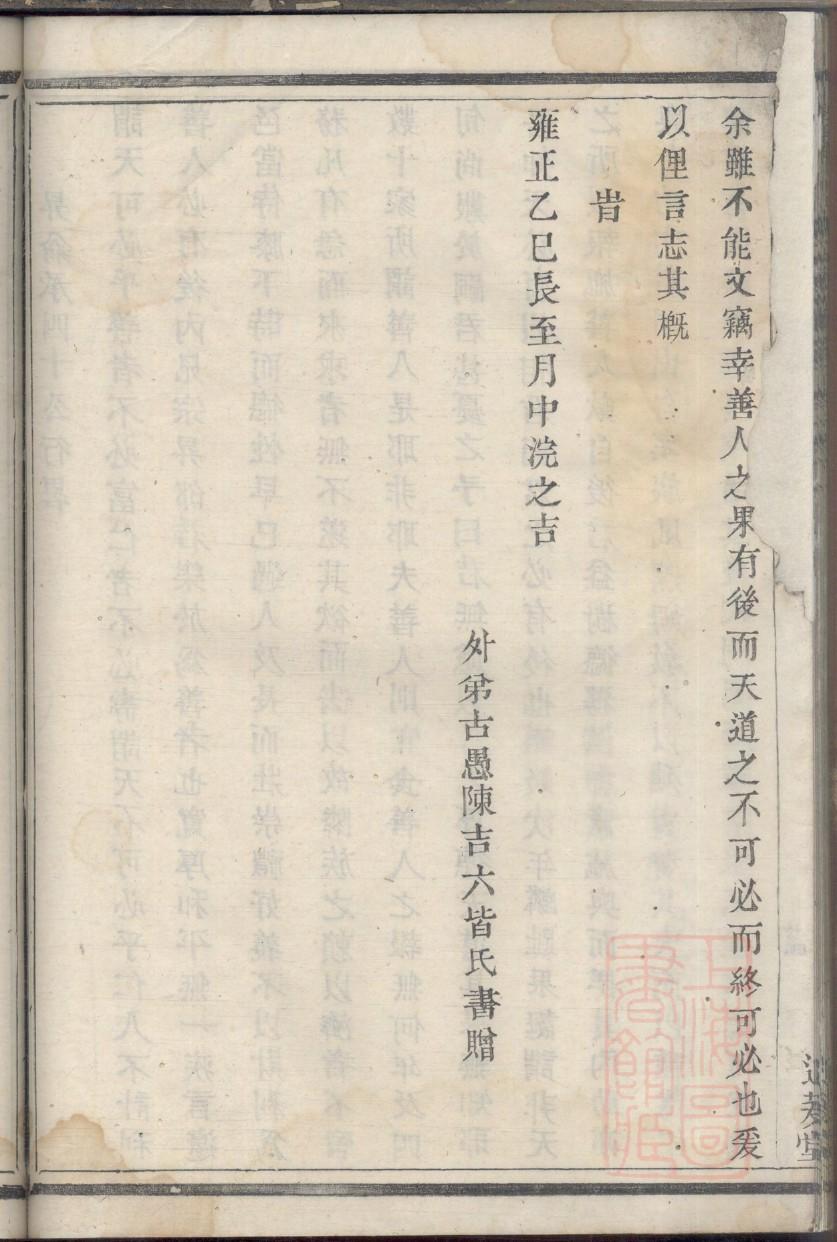 余雖不能文竊幸善人之果有後而天道之不可必而終可必也爰
以俚言志其概
旹
雍正乙巳長至月中浣之吉
外弟古愚陳吉六皆氏書贈
上海圖書館藏